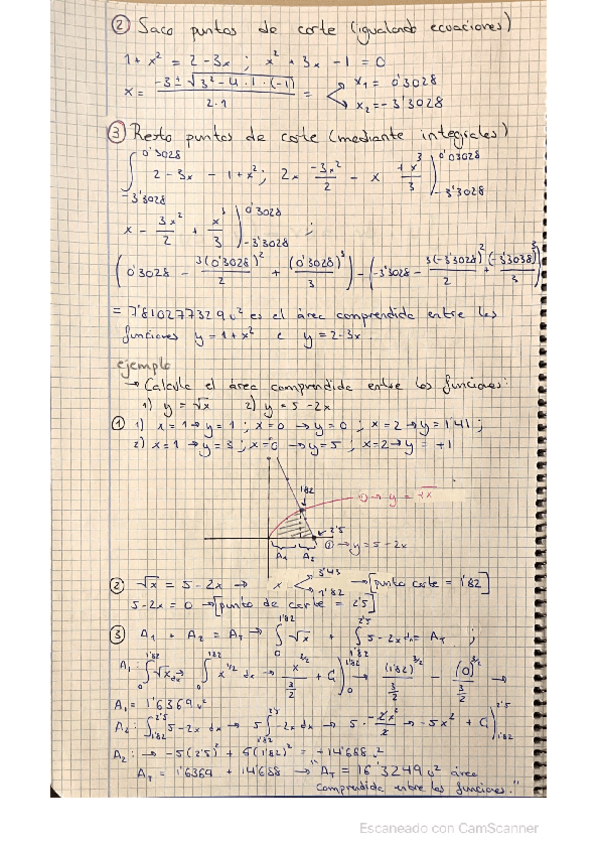 ② Saco puntos de corte (igualando ecuaciones)
1 + x² = 2 - 3x ; x² + 3x - 1 = 0
x = (-3 ± √(3² - 4·1·(-1))) / 2·1 = x₁ = 0'3028
x₂ = -3'3028
③ Resto puntos de corte (mediante integrales)
∫_{-3'3028}^{0'3028} 2 - 3x - 1 + x² ; 2x -3x²/2 - x +x³/3 )_{-3'3028}^{0'03028}
x - 3x²/2 + x³/3 )_{-3'3028}^{0'3028} ;
(0'3028 - 3(0'3028)²/2 + (0'3028)³/3) - (-3'3028 - 3(-3'3028)²/2 + (-3'3038)³/3)
= 7'810277329 u² es el área comprendida entre las
funciones y = 1 + x² e y = 2 - 3x.
ejemplo
→ Calcula el área comprendida entre las funciones:
1) y = √x 2) y = 5 - 2x
① 1) x = 1 → y = 1 ; x = 0 → y = 0 ; x = 2 → y = 1'41 ;
2) x = 1 → y = 3 ; x = 0 → y = 5 ; x = 2 → y = +1
1'82
→ y = √x
2'5
① → y = 5 - 2x
A₁ A₂
② √x = 5 - 2x → x 3'43
1'82 → [punto corte = 1'82]
5 - 2x = 0 → [punto de corte = 2'5]
③ A₁ + A₂ = A_T → ∫_{0}^{1'82} √x + ∫_{1'82}^{2'5} 5 - 2x dx = A_T ;
A₁: ∫_{0}^{1'82} √x dx → ∫_{0}^{1'82} x^{1/2} dx → x^{3/2}/(3/2) + C )_{0}^{1'82} → (1'82)^{3/2}/(3/2) - (0)^{3/2}/(3/2) →
A₁ = 1'6369 u²
A₂: ∫_{1'82}^{2'5} 5 - 2x dx → 5 ∫_{1'82}^{2'5} -2x dx → 5 · -2x²/2 → -5x² + C )_{1'82}^{2'5}
A₂: → -5(2'5)² + 5(1'82)² = +14'688 u²
A_T = 1'6369 + 14'688 → "A_T = 16'3249 u² área
comprendida entre las funciones."
Escaneado con CamScanner